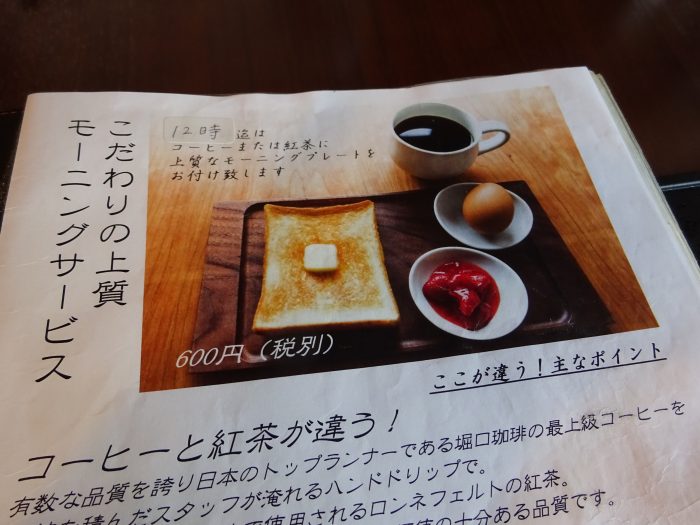 こだわりの上質
モーニングサービス
12時 迄は
コーヒーまたは紅茶に
上質なモーニングプレートを
お付け致します
600円（税別）
ここが違う！主なポイント
コーヒーと紅茶が違う！
有数な品質を誇り日本のトップランナーである堀口珈琲の最上級コーヒーを
を積んだスタッフが淹れるハンドドリップで。
使用されるロンネフェルトの紅茶。
の十分ある品質です。